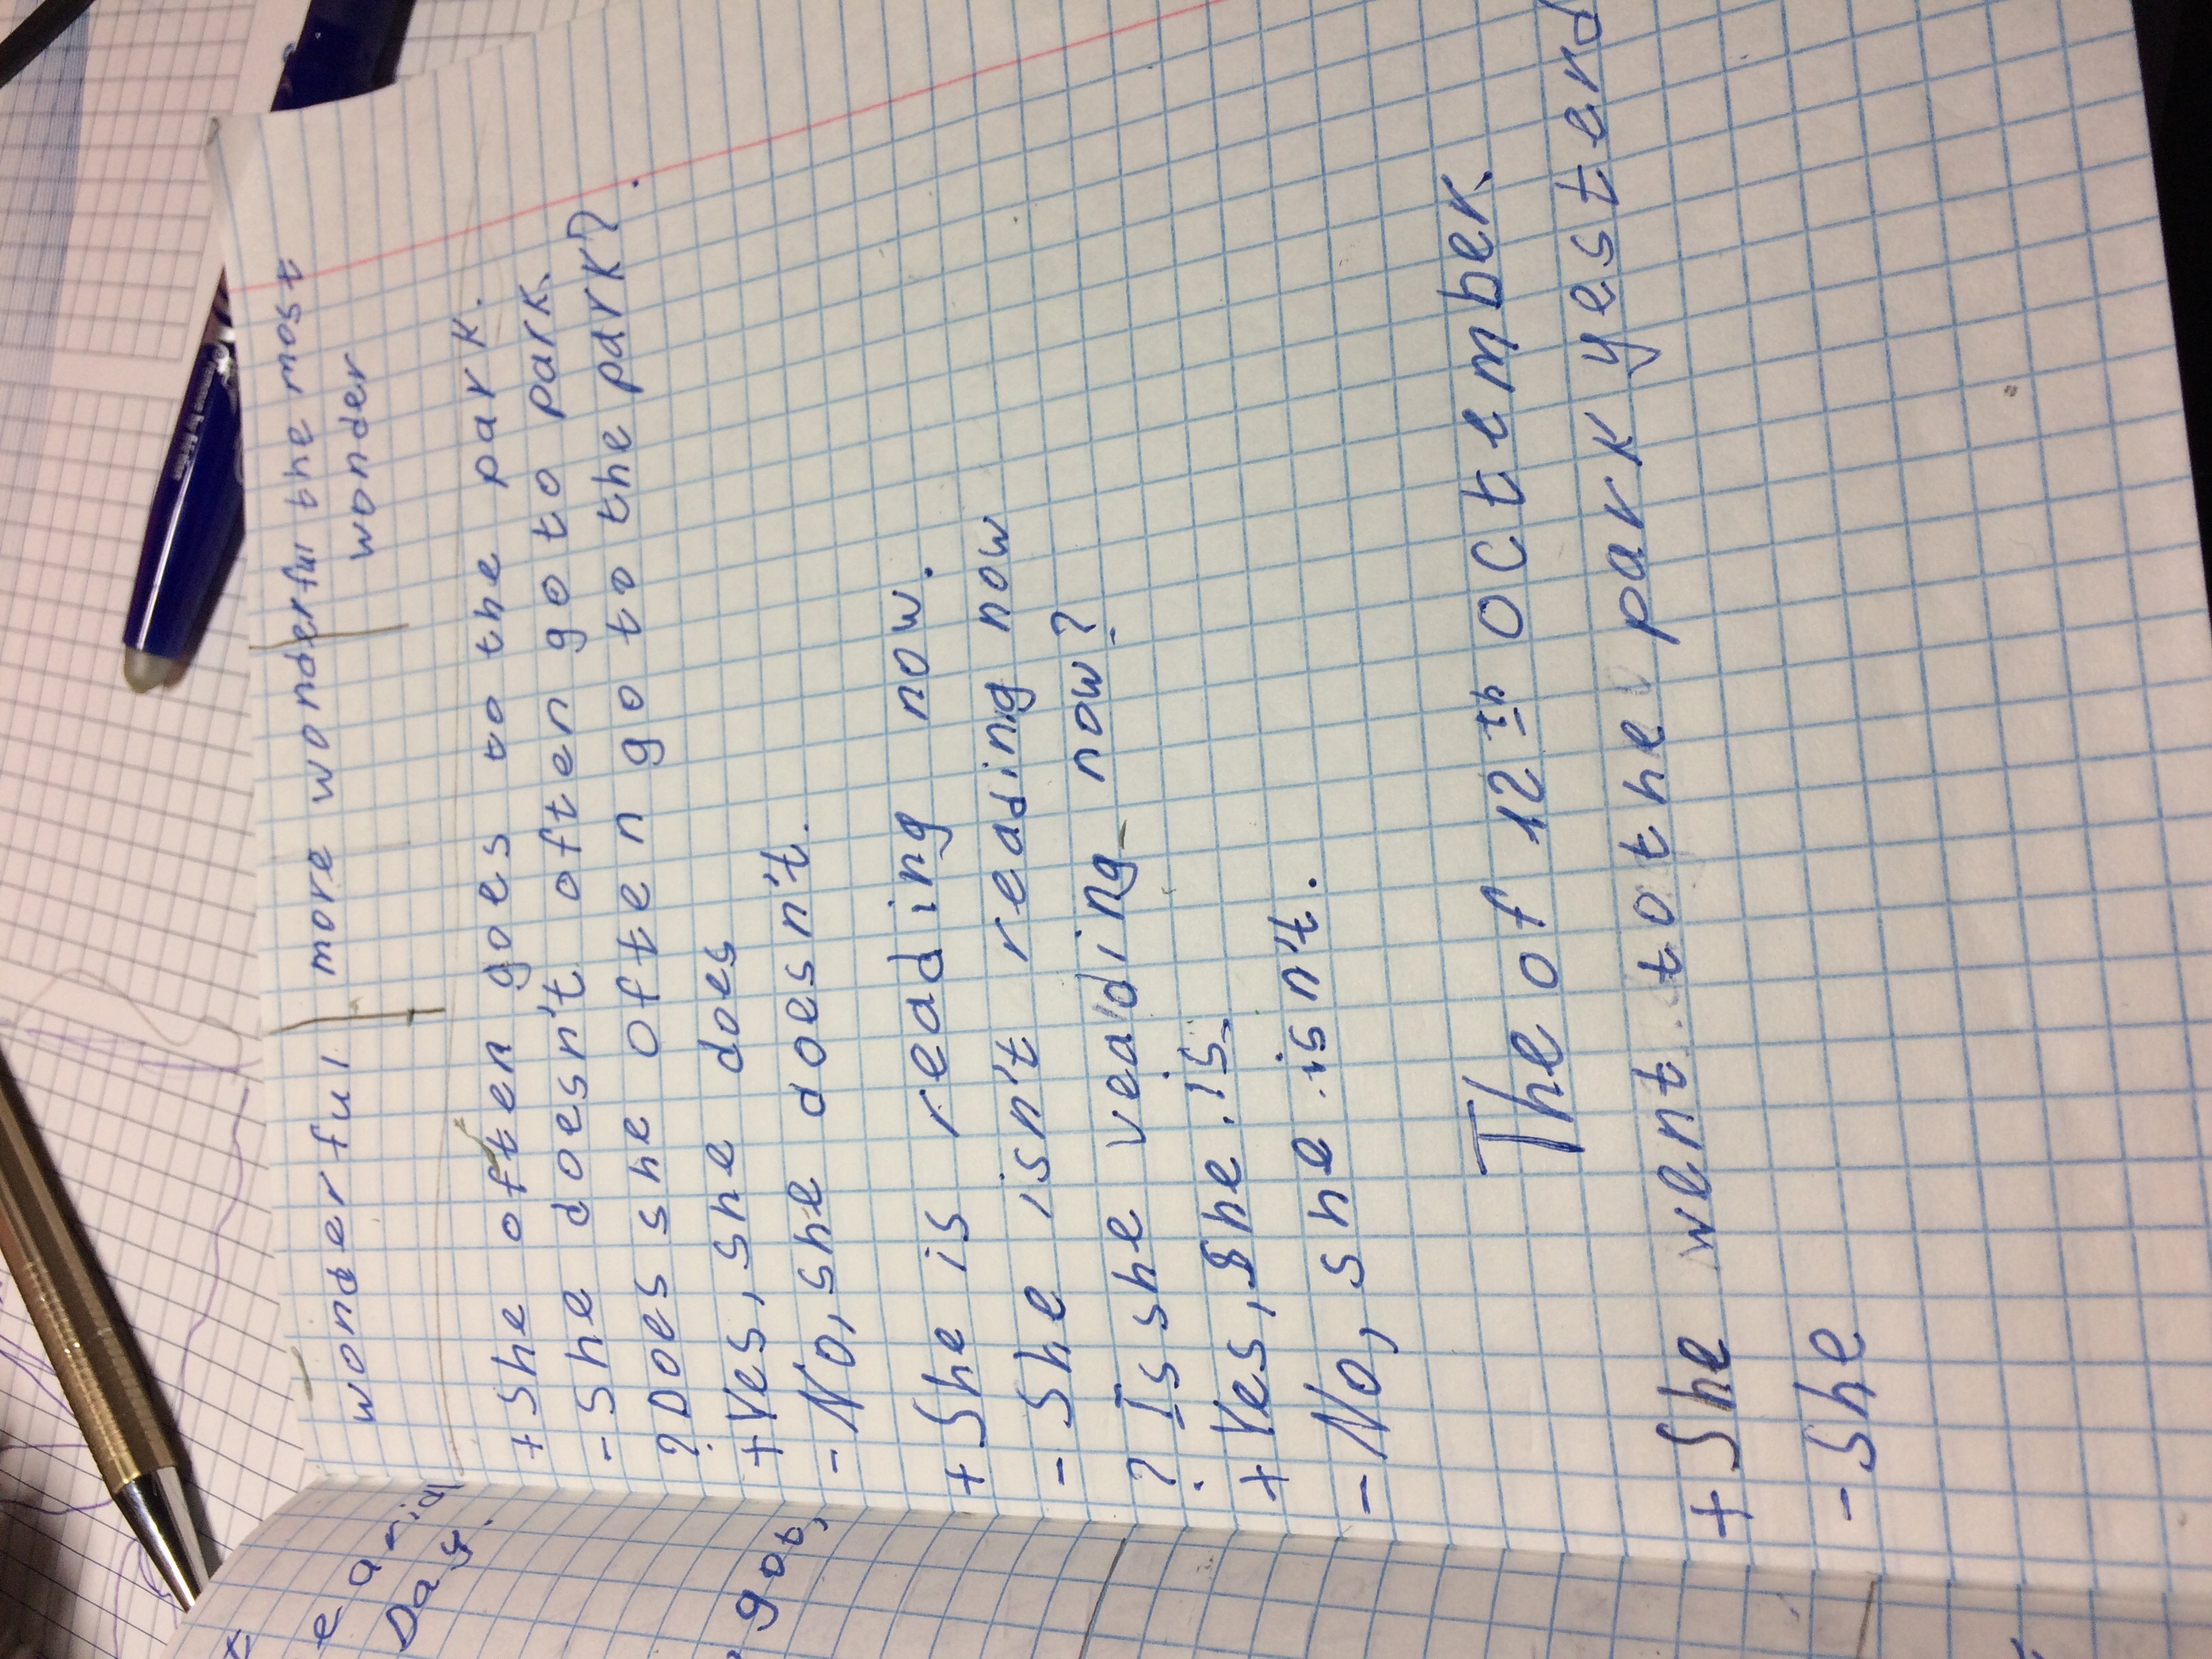 wonderful | more wonderful | the most
wonder
+ She often goes to the park.
- She doesn't often go to park.
? Does she often go to the park?
+ Yes, she does
- No, she doesn't.
+ She is reading now.
- She isn't reading now
? Is she reading now?
+ Yes, She is.
- No, she isn't.
The of 12th octember
+ She went to the park yesterd
- She
Day.
got,